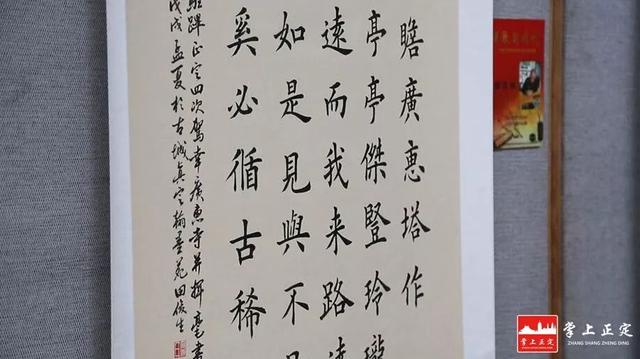 瞻廣惠塔作
亭亭傑豎玲瓏
遠而我来路
如是見與不
奚必循古稀
駐蹕正定四次駕幸廣惠寺并揮毫書
戊戌孟夏於古城真定翰墨苑田俊生
掌上正定
ZHANG SHANG ZHENG DING